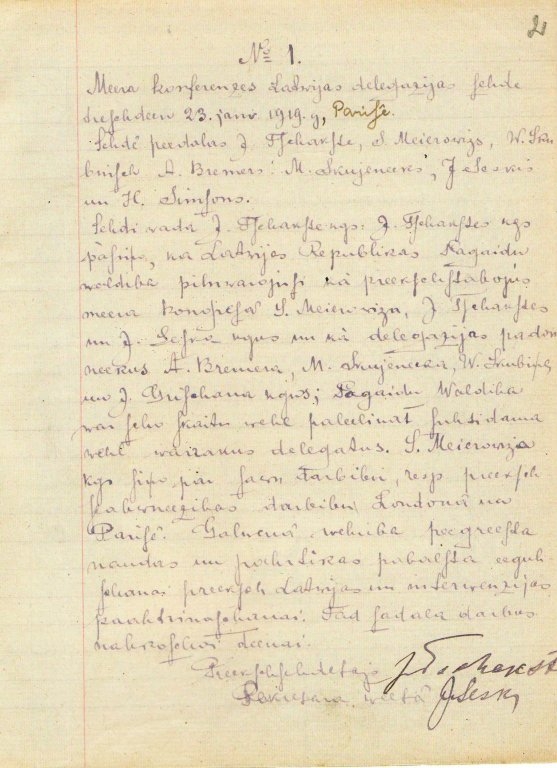 2
№ 1.
Meera Konferenzes Latwijas delegazijas sehde
treschdeen 23. janv. 1919. g, Parisê.
Sehdê peedalas J. Tschakste, S. Meierowizs, W. Sku-
binsch A. Bremers: M. Skujeneeks, J Seskis
un H. Simsons.
Sehdi wada J. Tschakste kgs: J. Tschakstes kgs
pasiņo, ka Latwijas Republikas Pagaidu
waldiba pilnwarojusi kâ preekschstahwjus
meera konfesê S. Meierowiza, J Tschakstes
un J. Seska kgus un kâ delegazijas padom
neekus A. Bremera, M. Skujeneeka, W. Skubiņa,
un J. Grischana kgus; Pagaidu Waldiba
war scho skaitu wehl palielinat suhtidama
wehl wairakus delegatus. S. Meierowiza
kgs siņo par sawu darbibu, resp. preeksch
stahwneezibas darbibu Londonâ un
Parisê. Galwenâ wehriba peegreesta
naudas un politikas pabalsta eeguh-
schanai preeksch Latwijas un interwenzijas
paahtrinaschanai. Tad sadala darbus
nahkoschai deenai.
Preekschsehdetajs J Tschakste
Sekretara weetâ J Seskis